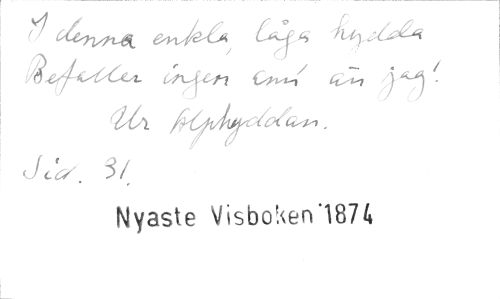 I denna enkla, låga hydda
Befaller ingen ann än jag!
Ur Alphyddan.
Sid. 31.
Nyaste Visboken 1874